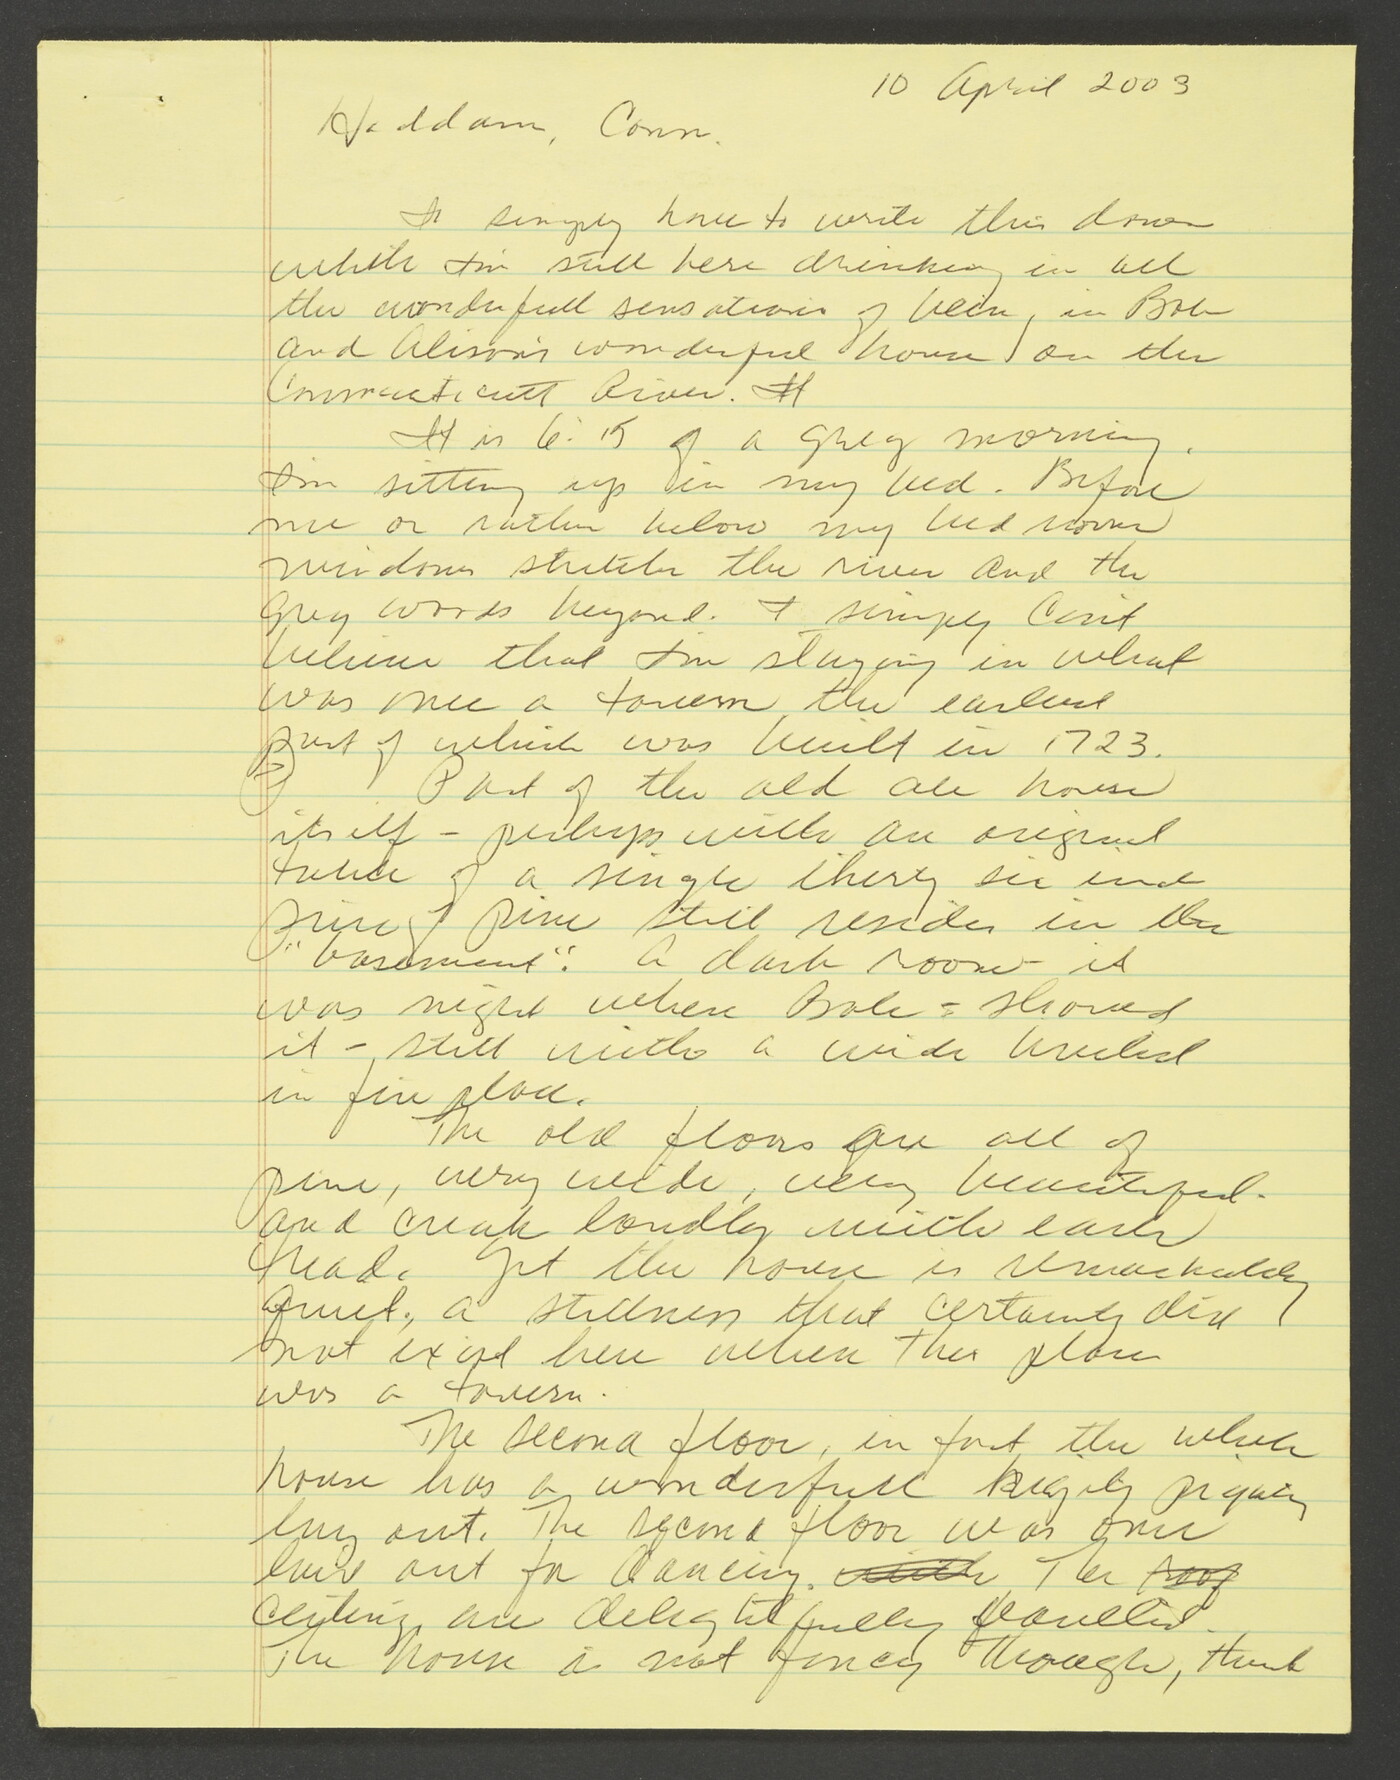 10 April 2003
Haddam, Conn.
I simply have to write this down
while I'm still here drinking in all
the wonderfull sensations of being in Bob
and Alison's wonderful house on the
Connecticutt River. It
It is 6:15 of a grey morning.
I'm sitting up in my bed. Before
me or rather below my bed room
windows stretches the river and the
grey woods beyond. I simply can't
believe that I'm staying in what
was once a tavern, the earliest
part of which was built in 1723.
Part of the old ale house
itself - perhaps with an original
table of a single thirty six inch
piece of pine still resides in the
"basement". A dark room - it
was night when Bob showed
it - still with a wide
in fire place.
The old floors are all of
pine, very wide, very beautiful
and creak loudly with each
tread. Yet the house is remarkably
quiet, a stillness that certainly did
not exist here when this place
was a tavern.
The second floor, in fact the whole
house has a wonderfull
lay out. The second floor was once
laid out for dancing. The roof
ceilings are delightfully
The house is not fancy though, thank